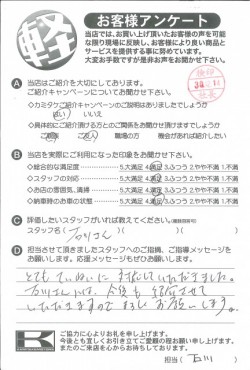 軽
お客様アンケート
当店では、お買い上げ頂いたお客様の声を可能
な限り現場に反映し、お客様により良い商品と
サービスを提供する事に努めています。
大変お手数ですが是非お声をお聞かせ下さい。
A 当店はご紹介を大切にしております。
ご紹介キャンペーンについてお聞かせ下さい。
◇カミタケご紹介キャンペーンのご説明はありましたでしょうか
はい いいえ
◇具体的にご紹介頂ける方とのご関係をお聞かせ頂けますでしょうか
ご親戚 ご友人 職場の方 機会があれば紹介したい
B 当店を実際にご利用になった印象をお聞かせ下さい。
◇総合的な満足度 5.大満足 4.満足 3.ふつう 2.やや不満 1.不満
◇スタッフの対応 5.大満足 4.満足 3.ふつう 2.やや不満 1.不満
◇お店の雰囲気、清掃 5.大満足 4.満足 3.ふつう 2.やや不満 1.不満
◇納車時のお車の状態 5.大満足 4.満足 3.ふつう 2.やや不満 1.不満
C 評価したいスタッフがいれば教えてください。(複数回答可)
スタッフ名( 石川さん )
D 担当させて頂きましたスタッフへのご指摘、ご指導メッセージを
お願いします。応援メッセージもぜひお願いします。
とてもていねいに対応していただきました。
石川さんには、今後も紹介させて
いただきますのでよろしくお願いします。
K
ご協力に心よりお礼を申し上げます。
今後とも宜しくお引き立てご愛顧の程お願い申し上げます。
またのご来店を心からお待ちしております。
担当( 石川 )